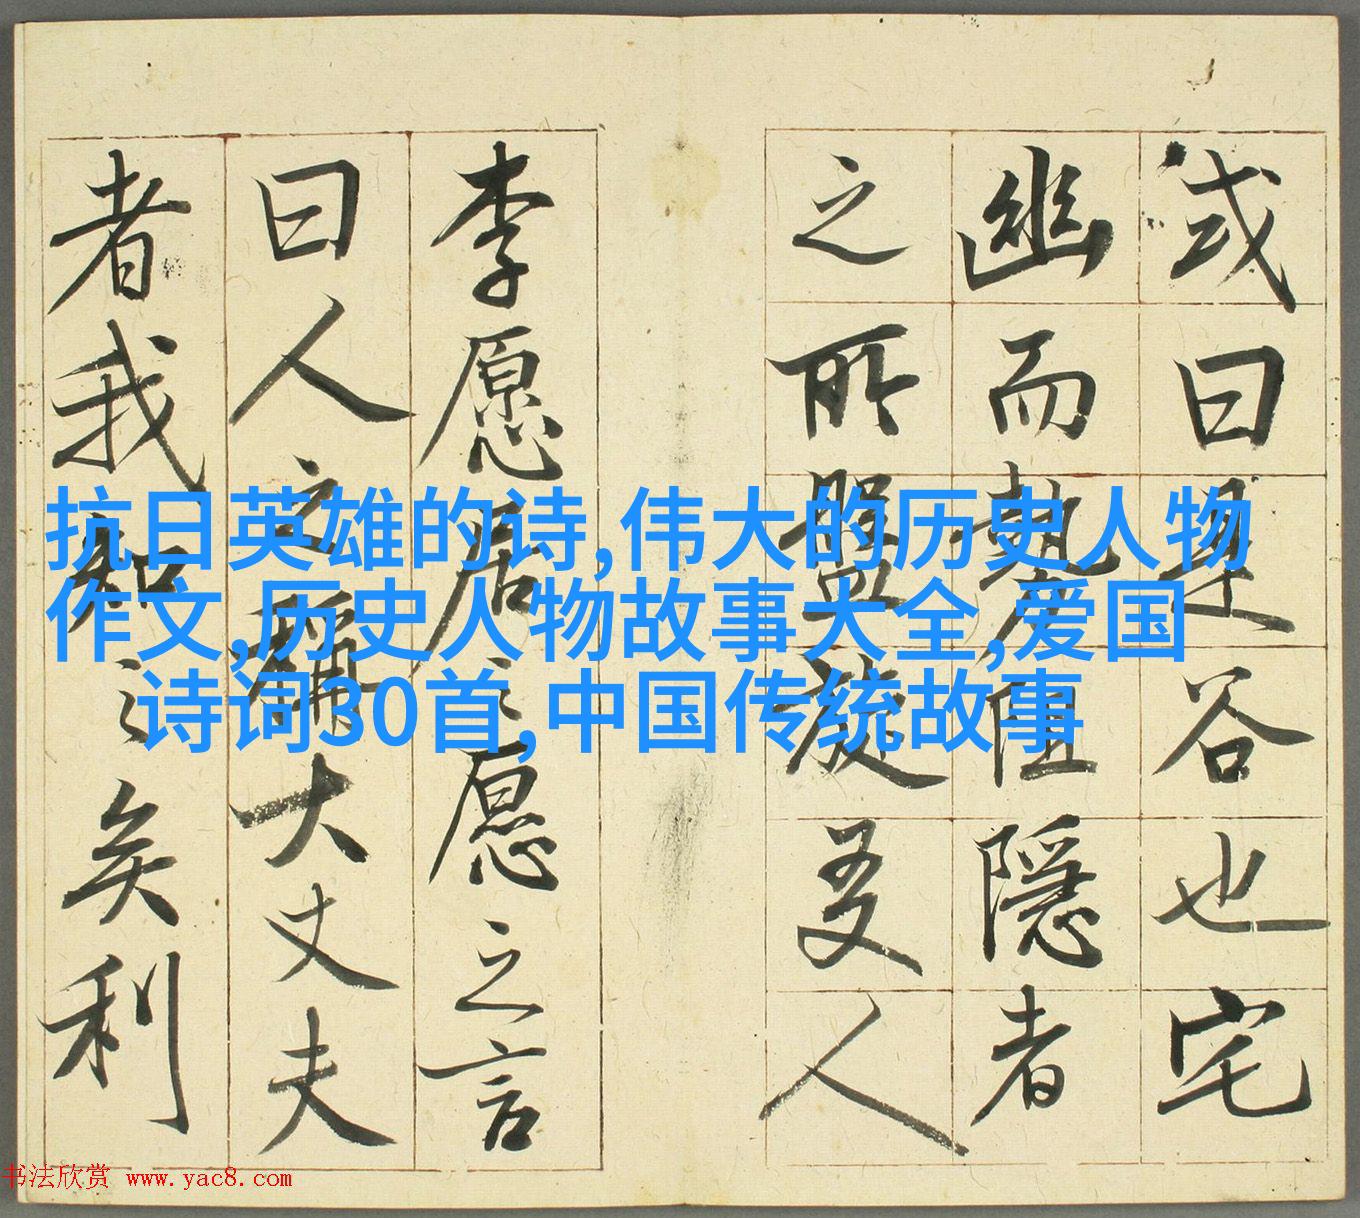 或曰是谷也宅
幽而勢阻隱者
之所盤旋友人
李愿居之愿之言
曰人之稱大丈夫
者我知之矣利
抗日英雄的诗,伟大的历史人物
作文,历史人物故事大全,爱国
诗词30首,中国传统故事
书法欣赏 www.yac8.com